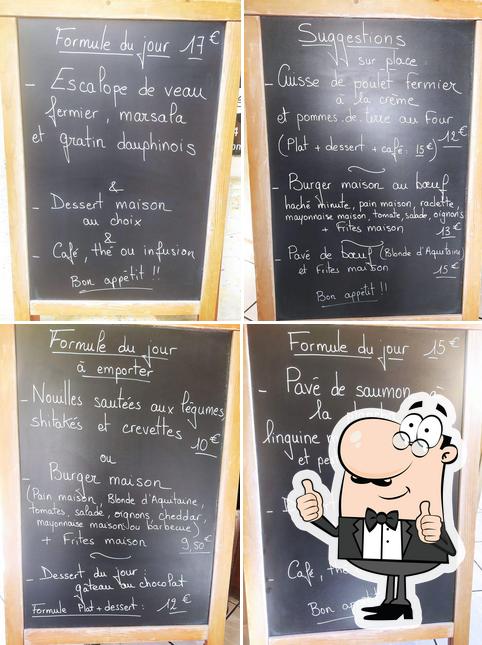 Formule du jour 17€
- Escalope de veau
fermier, marsala
et gratin dauphinois
&
- Dessert maison
au choix
&
- Café, thé ou infusion
Bon appétit !!
Suggestions
sur place
- Cuisse de poulet fermier
à la crème
et pommes de terre au Four
12€
(Plat + dessert + café: 15€)
- Burger maison au bœuf
haché minute, pain maison, raclette,
mayonnaise maison, tomate, salade, oignons
+ Frites maison 13€
- Pavé de bœuf (Blonde d'Aquitaine)
et Frites maison 15€
Bon appétit !!
Formule du jour
à emporter
- Nouilles sautées aux légumes,
shitakés et crevettes
10€
ou
- Burger maison
(Pain maison, Blonde d'Aquitaine,
tomates, salade, oignons, cheddar,
mayonnaise maison ou barbecue)
+ Frites maison 9,50€
- Dessert du jour :
gâteau au chocolat
Formule Plat + dessert : 12€
Formule du jour 15€
- Pavé de saumon
la
linguine
et
Café,
Bon